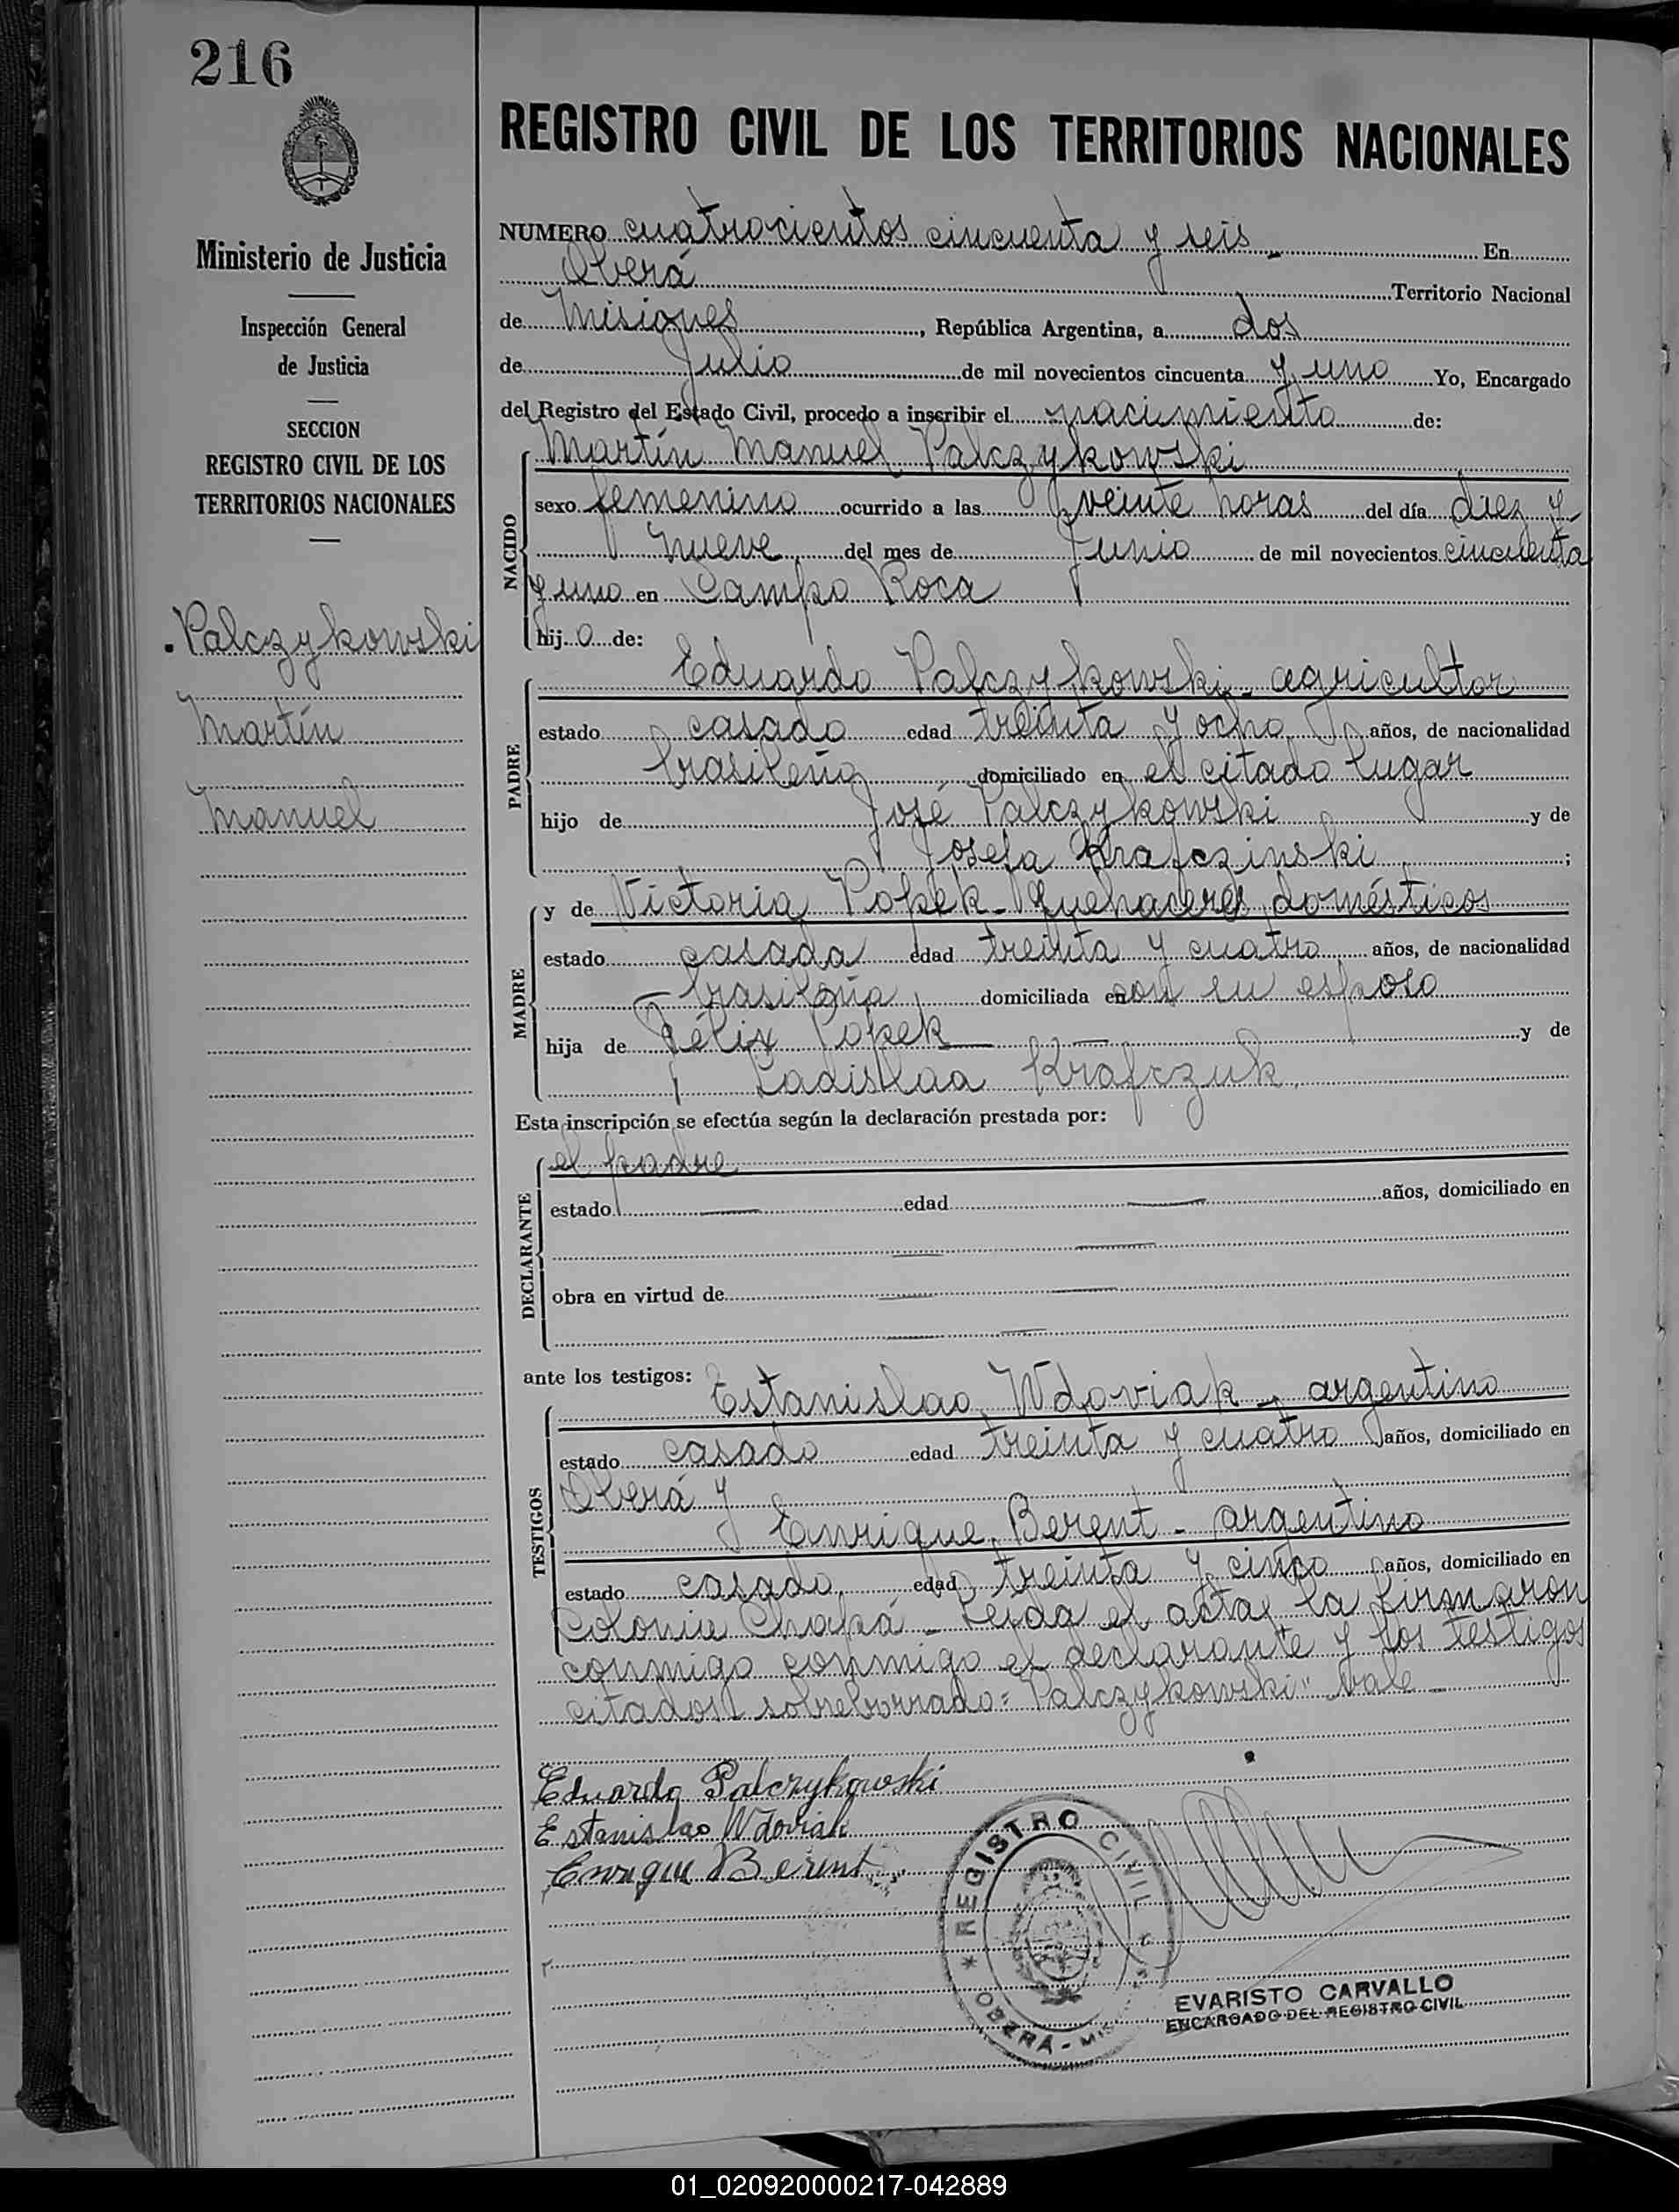 216
Ministerio de Justicia
Inspección General
de Justicia
SECCION
REGISTRO CIVIL DE LOS
TERRITORIOS NACIONALES
Palczykowski
Martín
Manuel
REGISTRO CIVIL DE LOS TERRITORIOS NACIONALES
NUMERO cuatrocientos cincuenta y seis En
Oberá Territorio Nacional
de Misiones, República Argentina, a dos
de Julio de mil novecientos cincuenta y uno Yo, Encargado
del Registro del Estado Civil, procedo a inscribir el nacimiento de:
Martín Manuel Palczykowski
NACIDO
sexo femenino ocurrido a las veinte horas del día diez y
nueve del mes de Junio de mil novecientos cincuenta
y uno en Campo Roca
hijo de:
PADRE
Eduardo Palczykowski - agricultor
estado casado edad treinta y ocho años, de nacionalidad
brasileña domiciliado en el citado lugar
hijo de José Palczykowski y de
Josefa Krafczinski;
MADRE
y de Victoria Popek - quehaceres domésticos
estado casada edad treinta y cuatro años, de nacionalidad
brasileña domiciliada en con su esposo
hija de Félix Popek y de
Ladislaa Krafczuk
Esta inscripción se efectúa según la declaración prestada por:
DECLARANTE
el padre
estado edad años, domiciliado en
obra en virtud de
ante los testigos:
TESTIGOS
Estanislao Wdoviak - argentino
estado casado edad treinta y cuatro años, domiciliado en
Oberá y
Enrique Berent - argentino
estado casado edad treinta y cinco años, domiciliado en
Colonia Chapá - Leida el acta, la firmaron
conmigo conmigo el declarante y los testigos
citados sobreborrado = "Palczykowski" Vale
Eduardo Palczykowski
Estanislao Wdoviak
Enrique Berent
REGISTRO CIVIL
OBERÁ -
EVARISTO CARVALLO
ENCARGADO DEL REGISTRO CIVIL
01_020920000217-042889